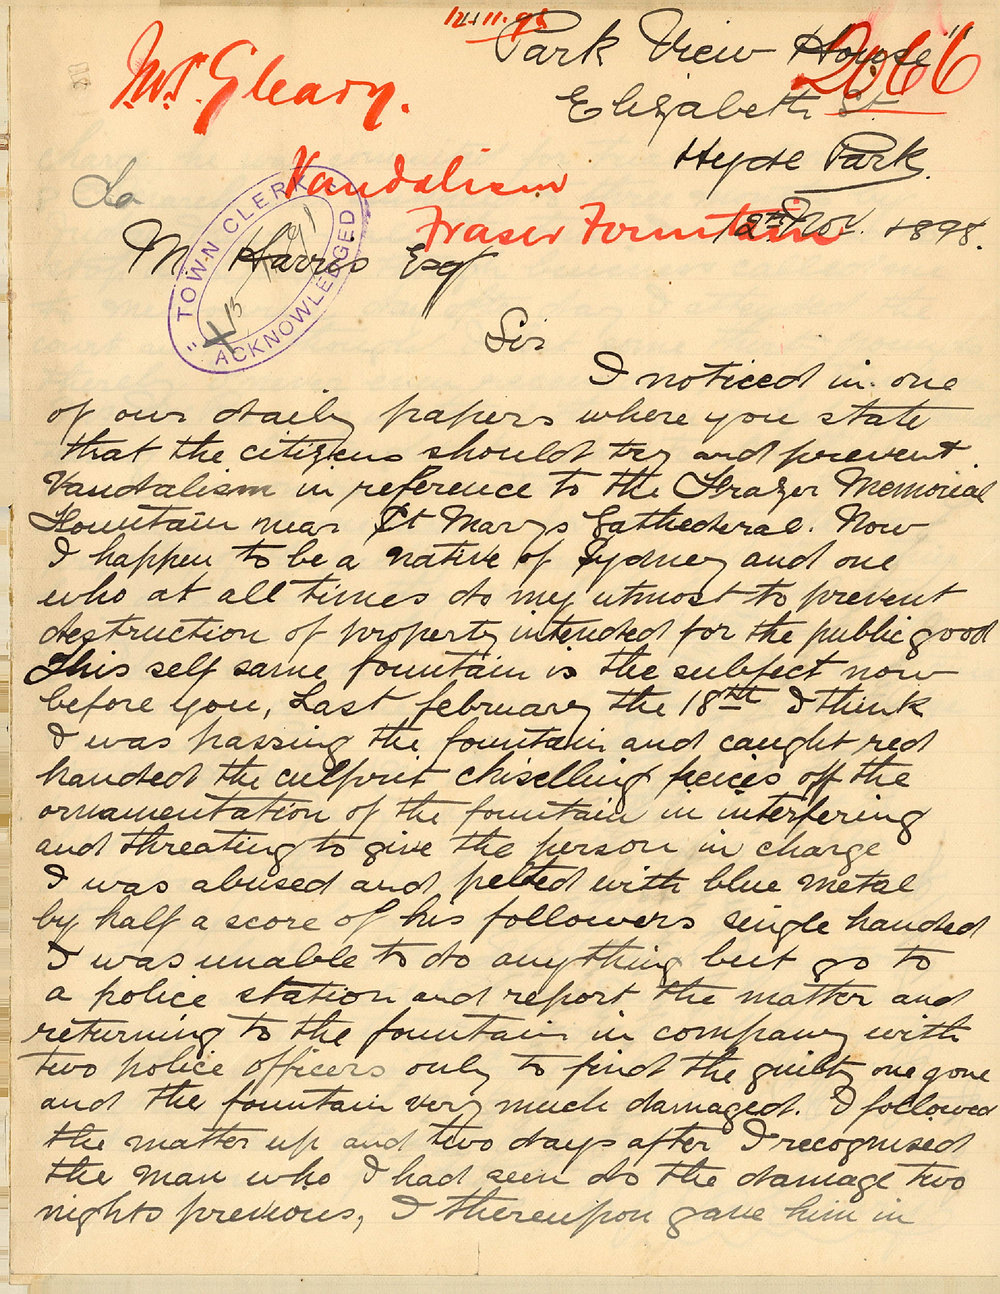 12.11.98
Park View House"
2066
Mr. Gleary.
Elizabeth St.
Hyde Park.
To
Vandalism
Fraser Fountain
12th Nov. 1898.
M. Harris Esq
"TOWN CLERK"
ACKNOWLEDGED
Sir
I noticed in one
of our daily papers where you state
that the citizens should try and prevent
Vandalism in reference to the Frazer Memorial
Fountain near St Marys Cathederal. Now
I happen to be a native of Sydney and one
who at all times do my utmost to prevent
destruction of property intended for the public good
This self same fountain is the subject now
before you, Last february the 18th I think
I was passing the fountain and caught red
handed the culprit chiselling peices off the
ornamentation of the fountain in interfering
and threating to give the person in charge
I was abused and pelted with blue metal
by half a score of his followers single handed
I was unable to do anything but go to
a police station and report the matter and
returning to the fountain in company with
two police officers only to find the guilty one gone
and the fountain very much damaged. I followed
the matter up and two days after I recognised
the man who I had seen do the damage two
nights previous, I thereupon gave him in